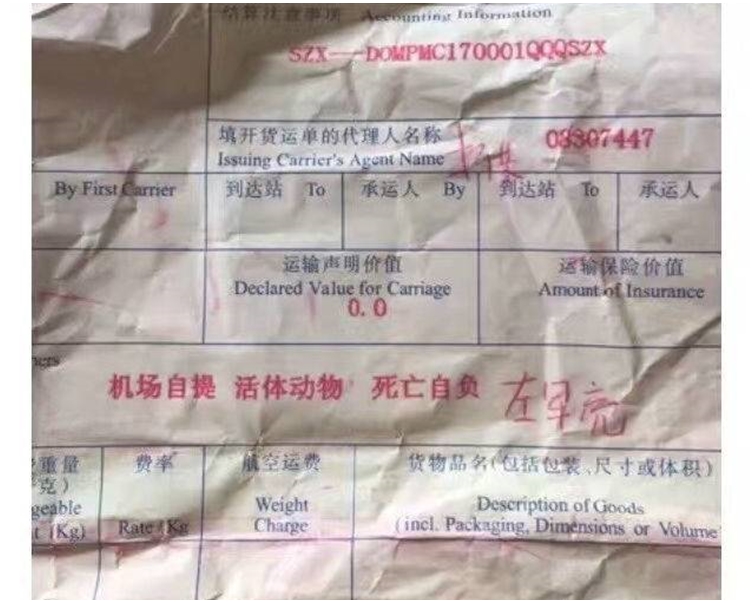 结算注意事项 Accounting Information
SZX---DOMPMC170001QQQSZX
填开货运单的代理人名称 08307447
Issuing Carrier's Agent Name
By First Carrier 到达站 To 承运人 By 到达站 To 承运人
运输声明价值 运输保险价值
Declared Value for Carriage Amount of Insurance
0.0
机场自提 活体动物 死亡自负
重量 费率 航空运费 货物品名(包括包装、尺寸或体积)
克)
geable Weight Description of Goods
t (Kg) Rate / Kg Charge (incl. Packaging, Dimensions or Volume